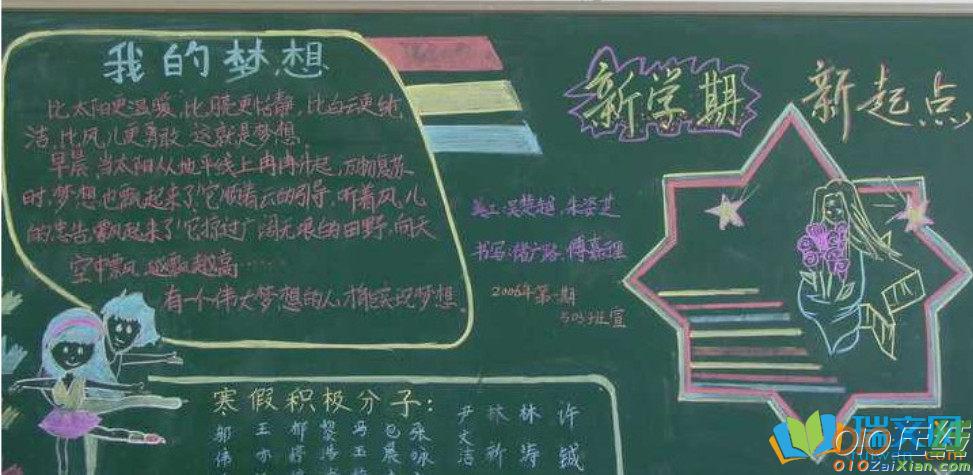 我的梦想
比太阳更温暖,比月亮更恬静,比白云更纯
洁,比风儿更勇敢,这就是梦想.
早晨,当太阳从地平线上冉冉升起,万物复苏
时,梦想也飘起来了!它顺着云的引导,听着风儿
的忠告飘起来了!它掠过广阔无垠的田野,向天
空中飘,越飘越高……
有一个伟大梦想的人,才能实现梦想.
新学期 新起点
美工:吴楚越、朱姿芝
书写:褚广路、傅嘉程
2006年第一期
503班宣
寒假积极分子:
尹文洁 林新 林涛 许铖
010在线
010ZaiXian.com